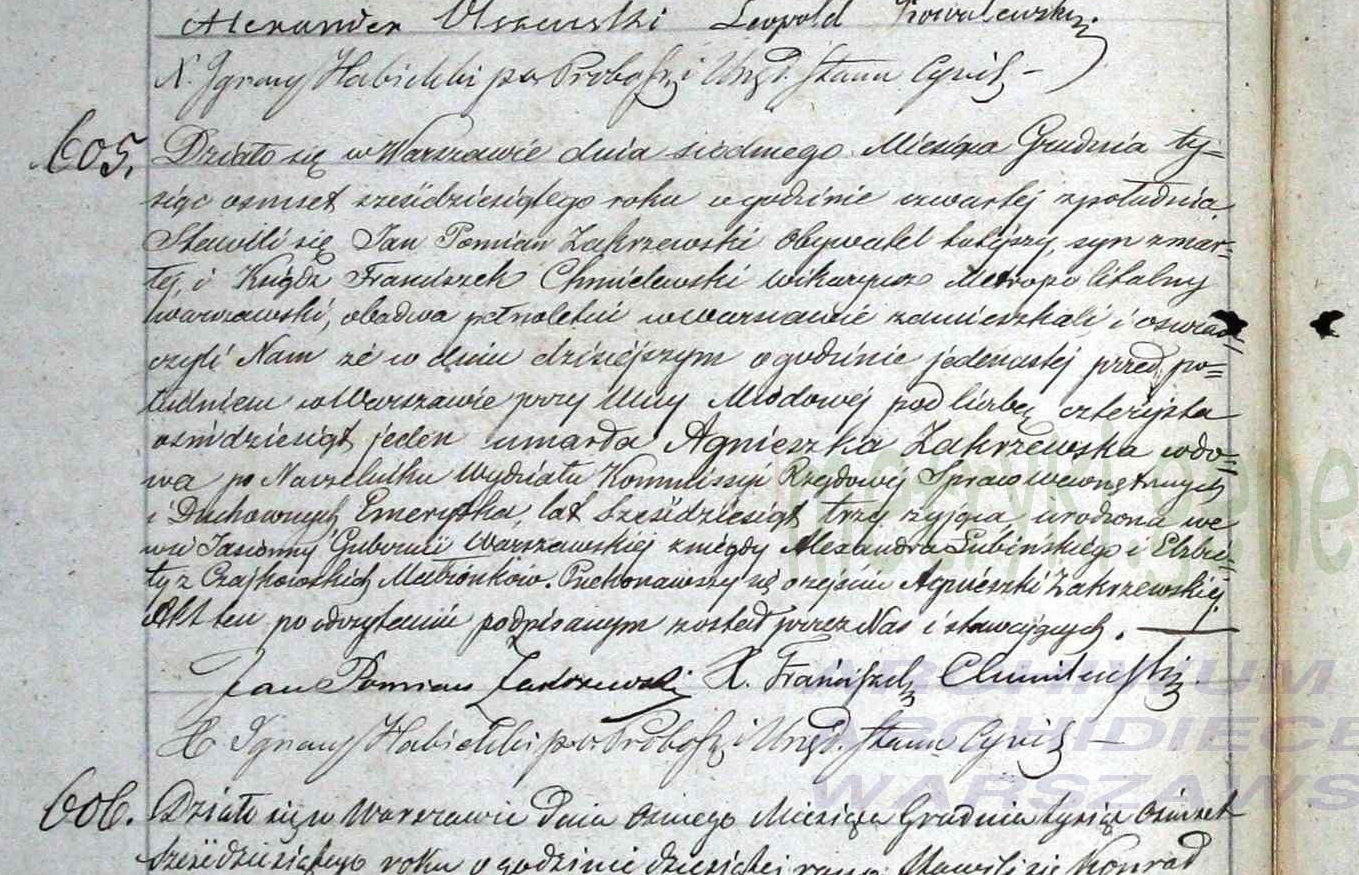 Alexander Olszewski Leopold Kowalewski
X. Ignacy Habichki Proboszcz i Urzęd. Stanu Cywil
605. Działo się w Warszawie dnia siódmego Miesiąca Grudnia ty=
siąc osmset sześćdziesiątego roku o godzinie czwartej z południa.
Stawili się Jan Pomian Zakrzewski Obywatel tutejszy, syn zmar=
łej, i Ksiądz Franciszek Chmielewski Wikaryusz Metropolitalny
warszawski, obadwa pełnoletni w Warszawie zamieszkali i oświad=
czyli Nam że w dniu dzisiejszym o godzinie jedenastej przed po=
łudniem w Warszawie przy Ulicy Miodowej pod liczbą czterysta
ośmdziesiąt jeden umarła Agnieszka Zakrzewska wdo=
wa po Naczelniku Wydziału Kommissyi Rządowej Spraw Wewnętrznych
i Duchownych, Emerytka, lat sześćdziesiąt trzy żyjąca, urodzona we
wsi Jasionny Gubernii Warszawskiej z niegdy Alexandra Łubińskiego i Elżbie=
ty z Czajkowskich Małżonków. Przekonawszy się o zejściu Agnieszki Zakrzewskiej,
Akt ten po odczytaniu podpisanym został przez Nas i stawających.
Jan Pomian Zakrzewski X. Franciszek Chmielewski
X Ignacy Habichki Proboszcz i Urzęd. Stanu Cywil
606. Działo się w Warszawie Dnia ósmego Miesiąca Grudnia tysiąc ośmset
sześćdziesiątego roku o godzinie dziesiątej rano. Stawili się Konrad
metryki.gene
ARCHIWUM
ARCHIDIECE
WARSZAWS